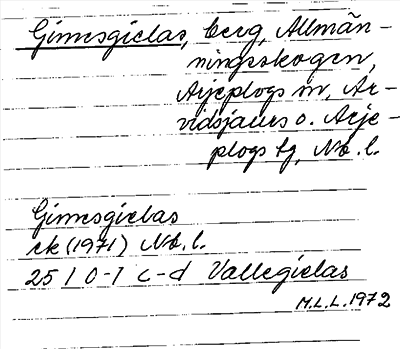 Gimesgielas, berg, Allmän-
ningsskogen,
Arjeplogs sn, Ar-
vidsjaurs o. Arje-
plogs tg, Nb. l.
Gimesgielas
ek (1971) Nb. l.
25 I 0-1 c-d Vallegielas
M.L.L. 1972